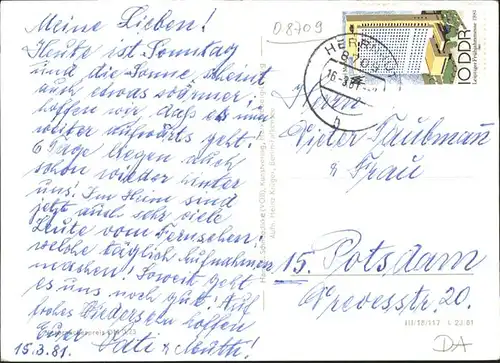 D 8709
Meine Lieben!
Heute ist Sonntag
und die Sonne, scheint
auch etwas wärmer,
hoffen wir, daß es nun
weiter aufwärts geht.
6 Tage liegen auch
schon wieder hinter
uns! Im Heim sind
jetzt auch sehr viele
Leute vom Fernsehen,
welche täglich Aufnahmen
machen! Soweit geht
es uns noch gut! Auf
frohes Wiedersehn hoffen
Euer Vati & Mutti!
15.3.81.
HERRN
8709
16.-3.81
h
10 DDR
Herrn
Dieter Taubmann
& Frau
15. Potsdam
20.
III/18/117 L 22/81
DA